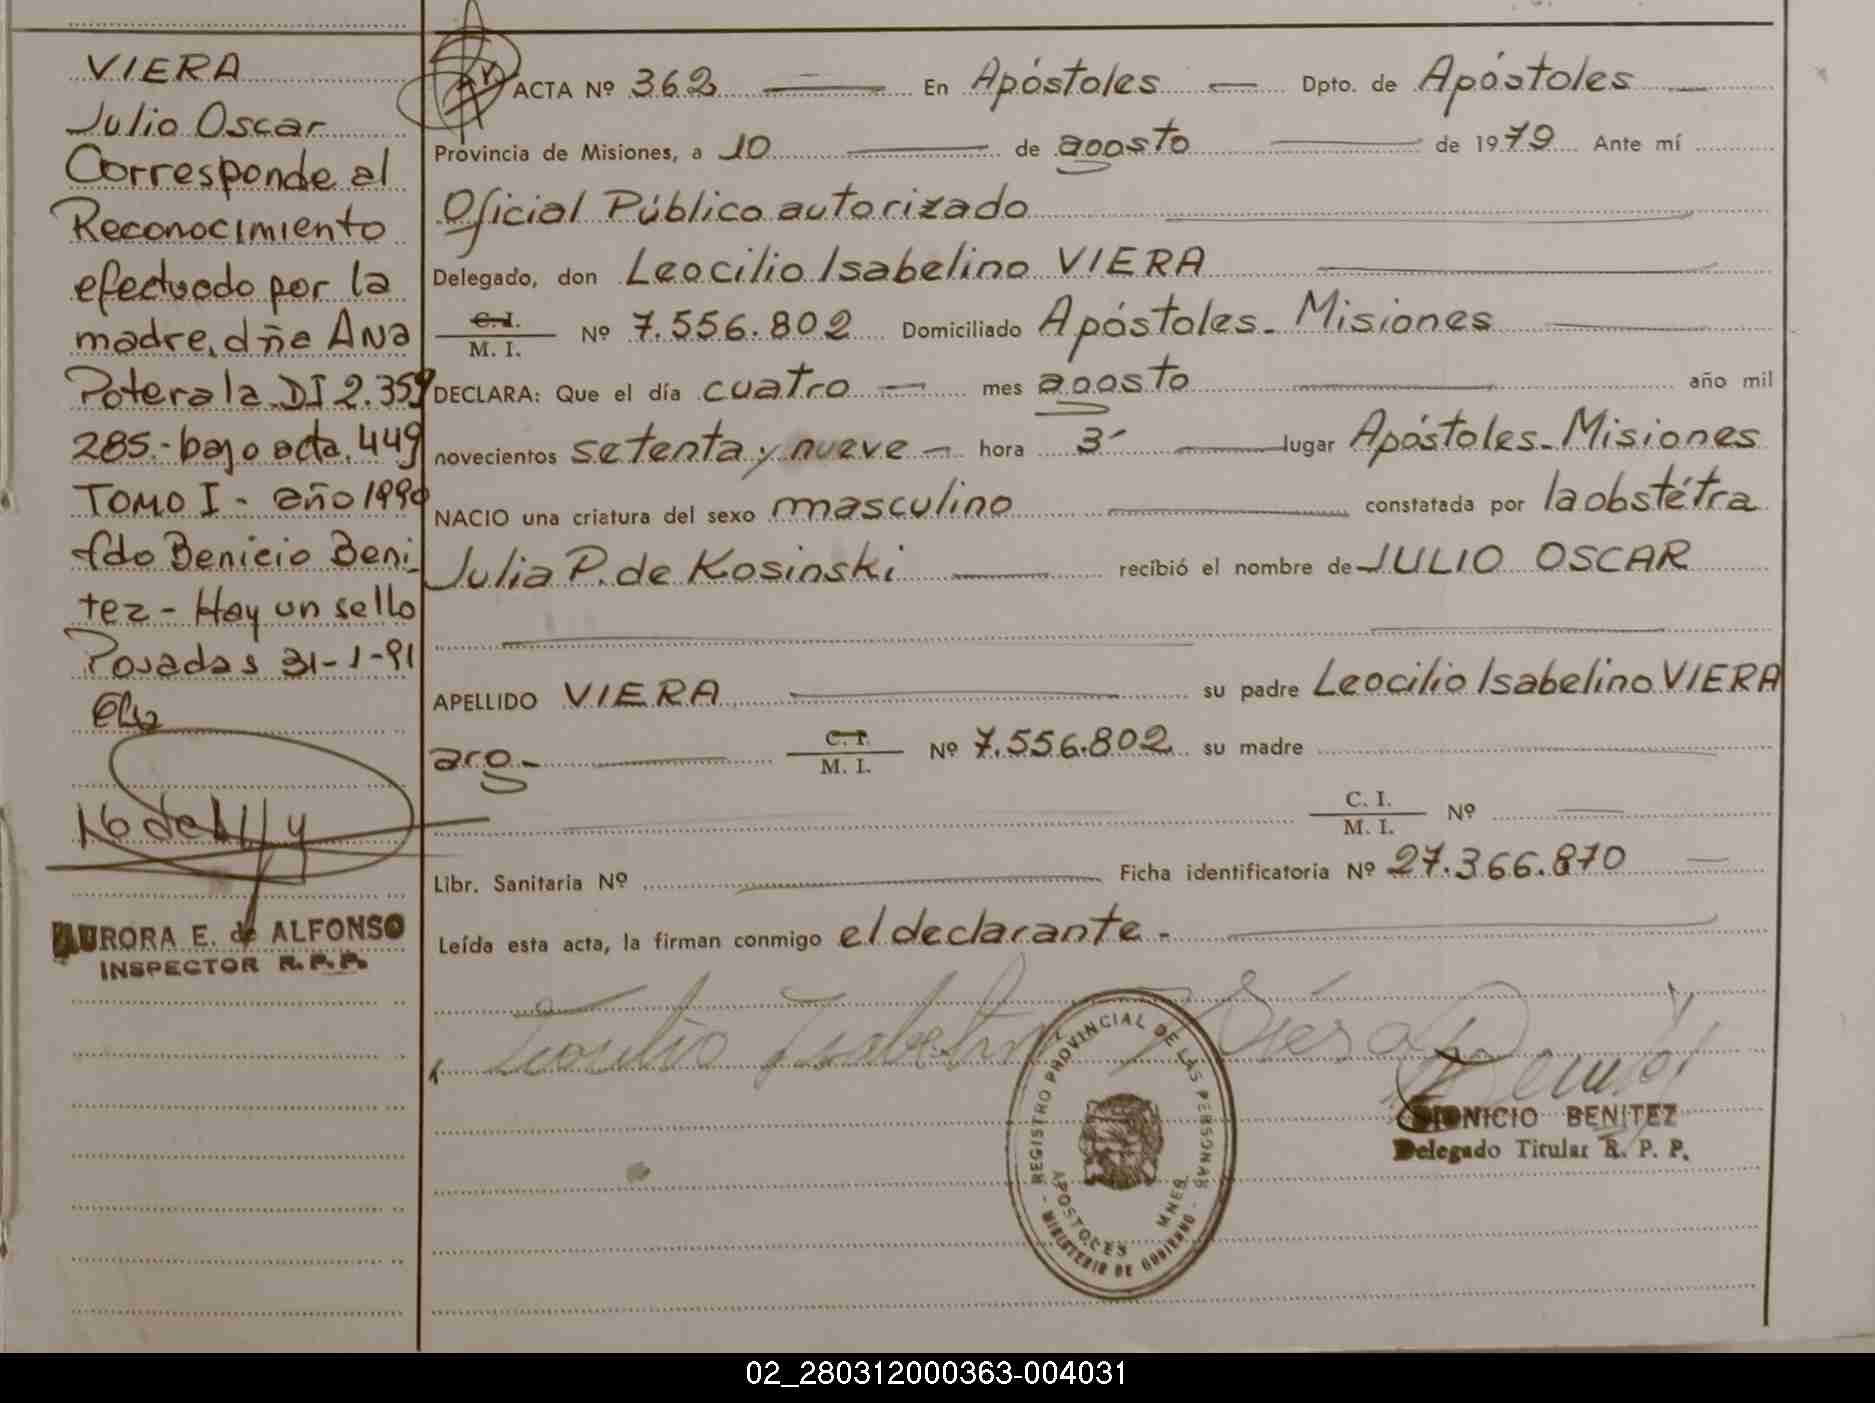 VIERA
Julio Oscar
Corresponde al
Reconocimiento
efectuado por la
madre, dñe ANA
Poterala DI 2.359
285.- bajo acta. 449
TOMO I - año 1990
fdo Benicio Beni_
tez - Hay un sello
Posadas 31-1-91
AURORA E. de ALFONSO
INSPECTOR R.P.P.
ACTA Nº 362 En Apóstoles Dpto. de Apóstoles
Provincia de Misiones, a 10 de agosto de 1979 Ante mí
Oficial Público autorizado
Delegado, don Leocilio Isabelino VIERA
C.I.
M. I. Nº 7.556.802 Domiciliado Apóstoles - Misiones
DECLARA: Que el día cuatro mes agosto año mil
novecientos setenta y nueve hora 3 lugar Apóstoles - Misiones
NACIO una criatura del sexo masculino constatada por la obstétra
Julia P. de Kosinski recibió el nombre de JULIO OSCAR
APELLIDO VIERA su padre Leocilio Isabelino VIERA
arg.- C. I.
M. I. Nº 7.556.802 su madre
C. I.
M. I. Nº
Libr. Sanitaria Nº Ficha identificatoria Nº 27.366.870
Leída esta acta, la firman conmigo el declarante.-
REGISTRO PROVINCIAL DE LAS PERSONAS
APOSTOLES MNES
- MINISTERIO DE GOBIERNO -
DIONICIO BENITEZ
Delegado Titular R. P. P.
02_280312000363-004031